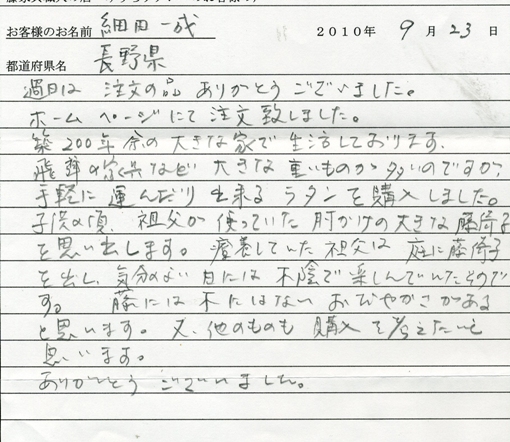 お客様のお名前 細田一成 2010年 9月 23日
都道府県名 長野県
過日は 注文の品 ありがとうございました。
ホームページにて注文致しました。
築200年余の大きな家で生活しております。
飛騨の家具など 大きな重いものが多いのですが、
手軽に運んだり出来るラタンを購入しました。
子供の頃、祖父が使っていた肘かけの大きな藤倚子
を思い出します。療養していた祖父は庭に藤倚子
を出し、気分のよい日には木陰で楽しんでいたものです
す。 藤には木にはない おだやかさがある
と思います。又、他のものも購入を考えたいと
思います。
ありがとうございました。